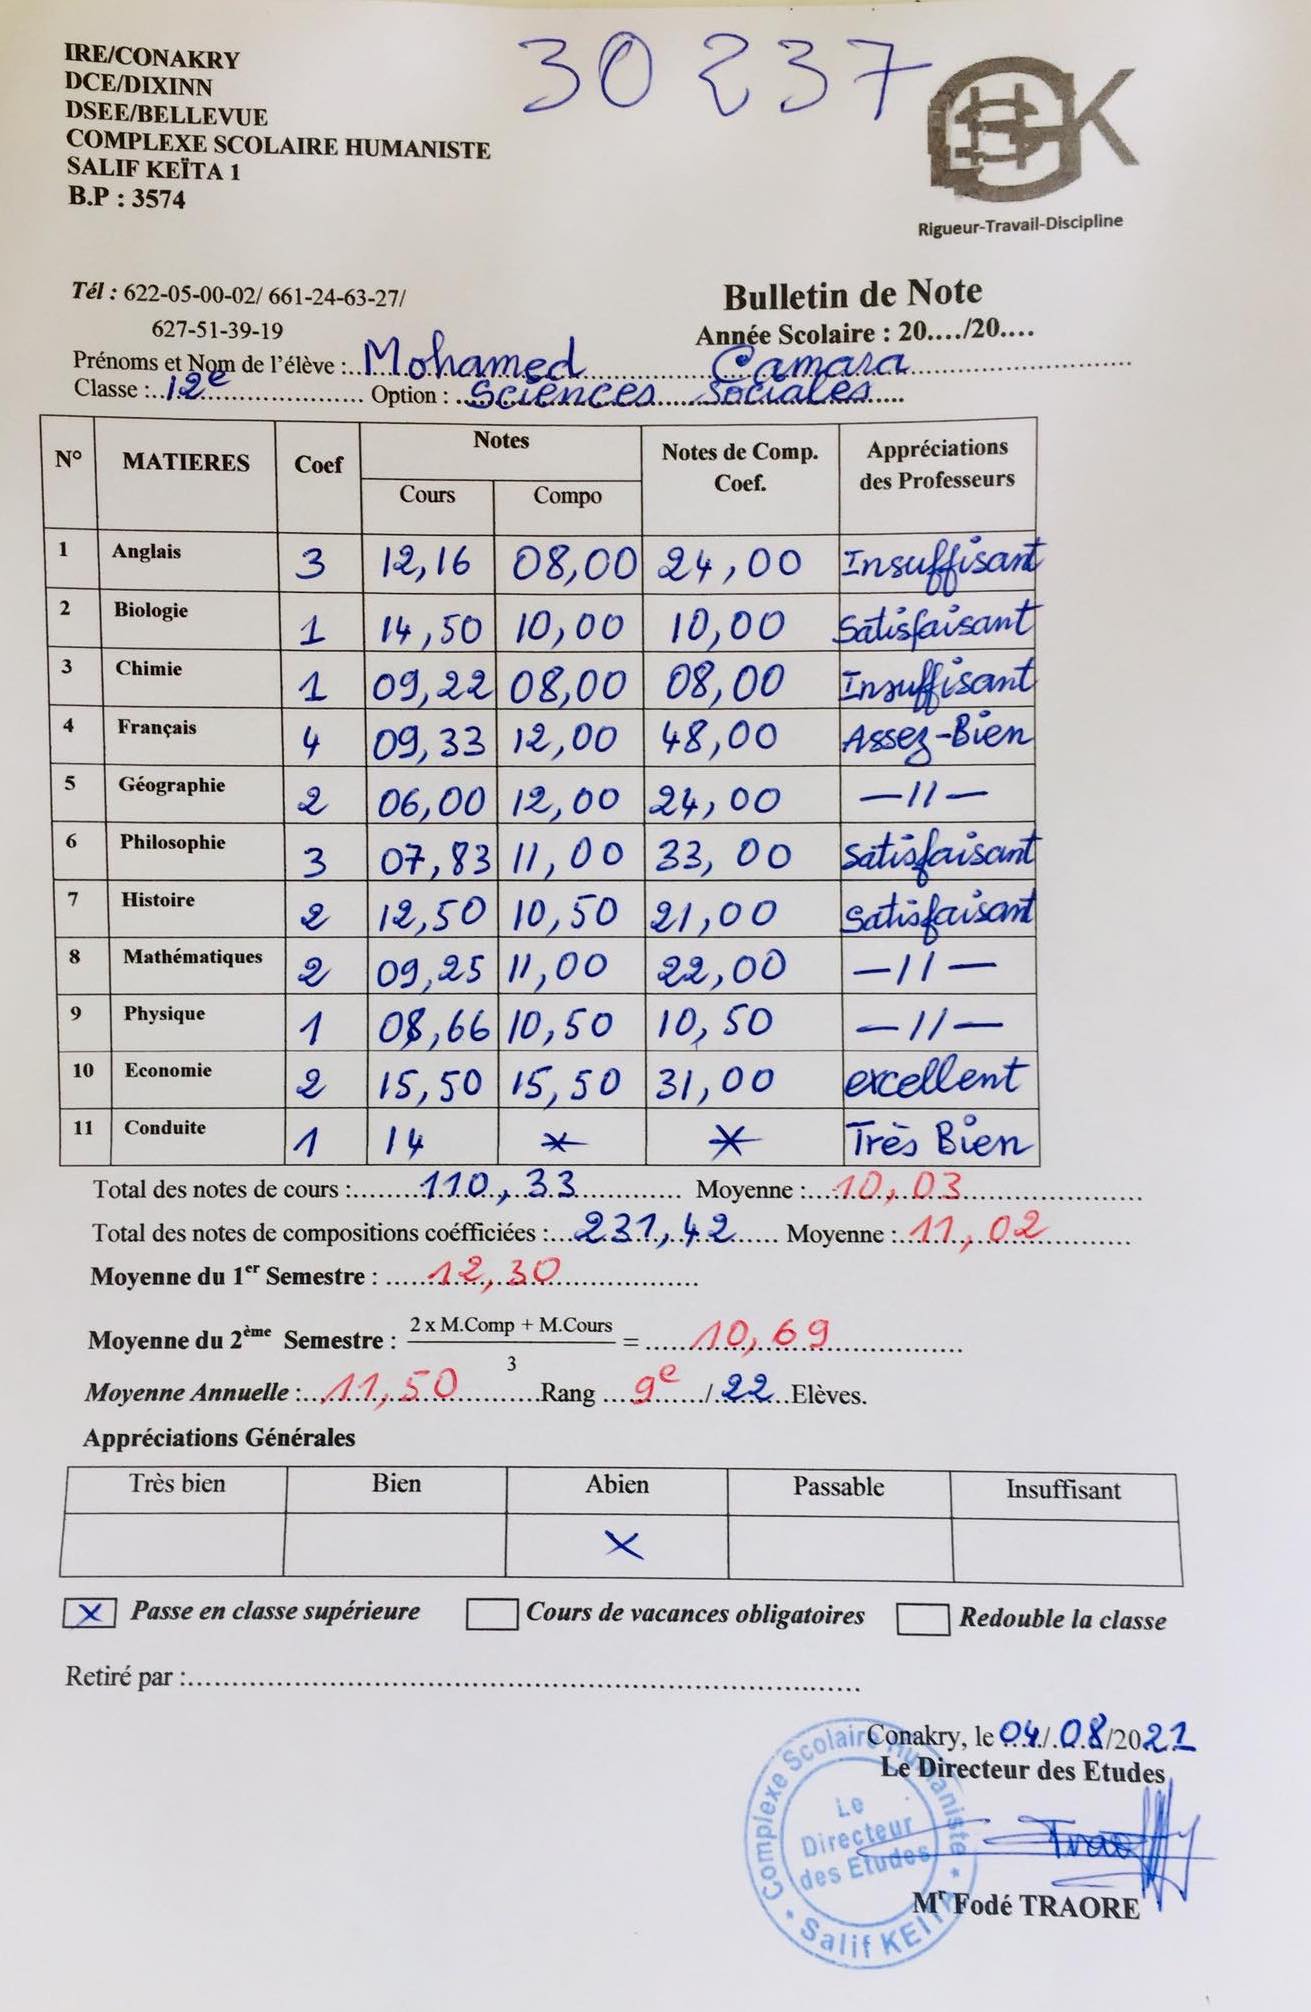 30 237
IRE/CONAKRY
DCE/DIXINN
DSEE/BELLEVUE
COMPLEXE SCOLAIRE HUMANISTE
SALIF KEÏTA 1
B.P : 3574
Rigueur-Travail-Discipline
Tél : 622-05-00-02/ 661-24-63-27/
627-51-39-19
Bulletin de Note
Année Scolaire : 20..../20....
Prénoms et Nom de l'élève : Mohamed Camara
Classe : 12e Option : Sciences Sociales
N° MATIERES Coef Notes Notes de Comp. Coef. Appréciations des Professeurs
Cours Compo
1 Anglais 3 12,16 08,00 24,00 Insuffisant
2 Biologie 1 14,50 10,00 10,00 Satisfaisant
3 Chimie 1 09,22 08,00 08,00 Insuffisant
4 Français 4 09,33 12,00 48,00 Assez-Bien
5 Géographie 2 06,00 12,00 24,00 —//—
6 Philosophie 3 07,83 11,00 33,00 Satisfaisant
7 Histoire 2 12,50 10,50 21,00 Satisfaisant
8 Mathématiques 2 09,25 11,00 22,00 —//—
9 Physique 1 08,66 10,50 10,50 —//—
10 Economie 2 15,50 15,50 31,00 excellent
11 Conduite 1 14 * * Très Bien
Total des notes de cours : 110,33 Moyenne : 10,03
Total des notes de compositions coéfficiées : 231,42 Moyenne : 11,02
Moyenne du 1er Semestre : 12,30
Moyenne du 2ème Semestre : 2 x M.Comp + M.Cours / 3 = 10,69
Moyenne Annuelle : 11,50 Rang 9e / 22 Elèves.
Appréciations Générales
Très bien Bien Abien Passable Insuffisant
X
X Passe en classe supérieure Cours de vacances obligatoires Redouble la classe
Retiré par :
Conakry, le 04/08/2021
Le Directeur des Etudes
Complexe Scolaire Humaniste * Salif KEITA *
Le
Directeur
des Etudes
Mr Fodé TRAORE